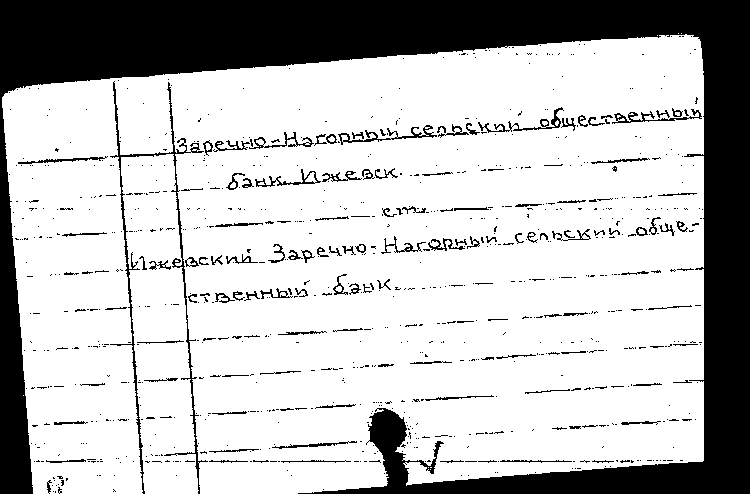 Заречно-Нагорный сельский общественный
банк. Ижевск.
см.
Ижевский Заречно-Нагорный сельский обще-
ственный банк.